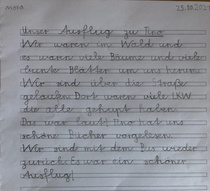 Mona 25.10.202
Unser Ausflug zu Tino
Wir waren im Wald und
es waren viele Bäume und viele
bunte Blätter um uns herum.
Wir sind über die Straße
gelaufen. Dort waren viele LKW
die alle gehupt haben
Das war laut! Tino hat uns
schöne Bücher vorgelesen.
Wir sind mit dem Bus wieder
zurück. Es war ein schöner
Ausflug!